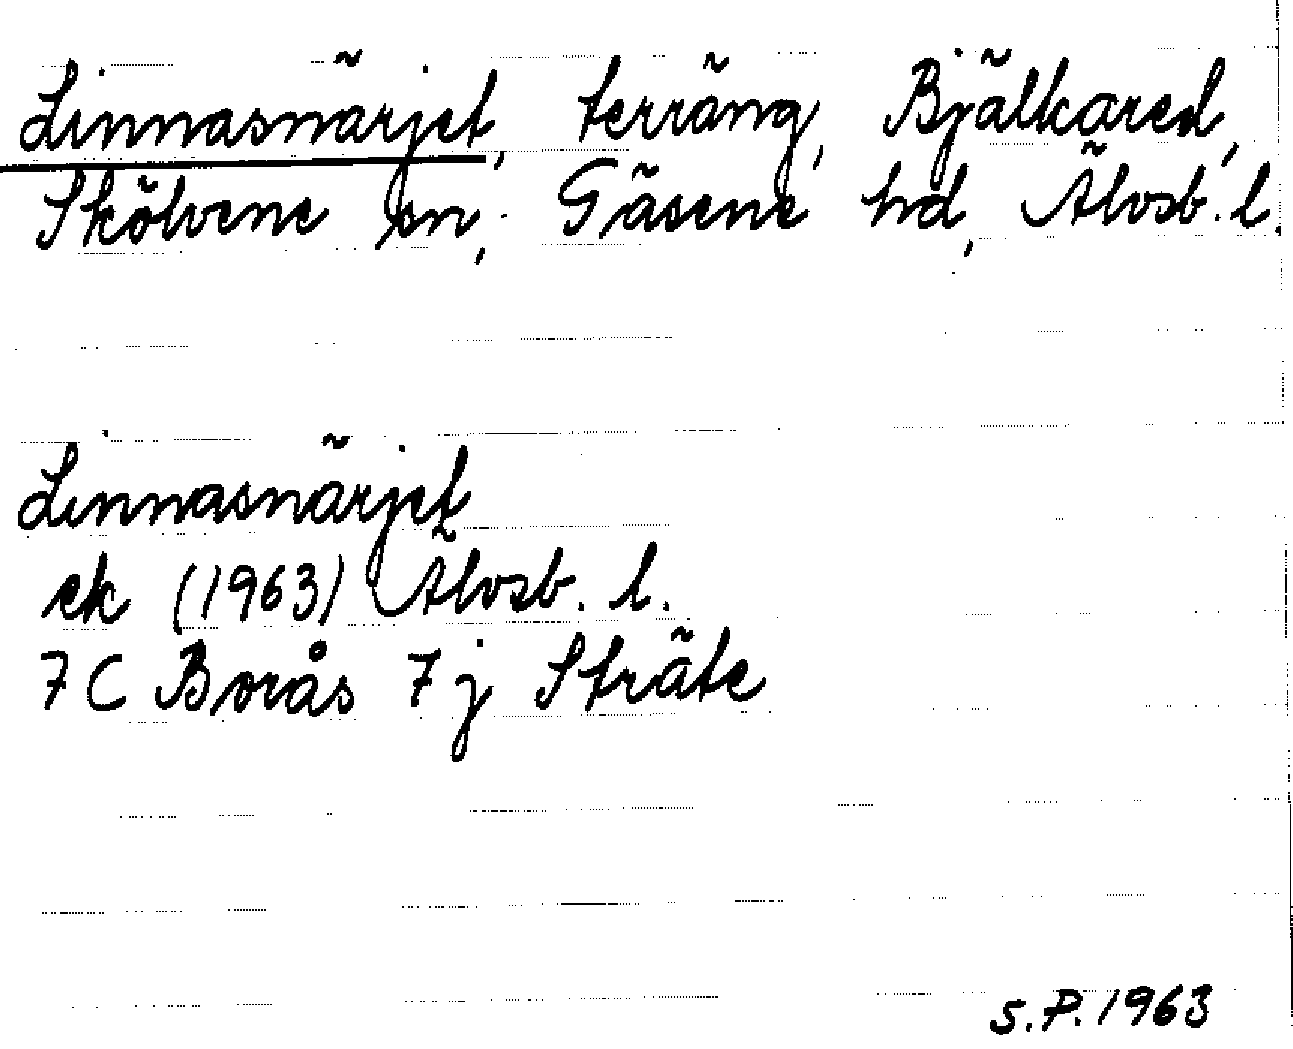 Linnasnärjet, terräng, Bjälkared,
Skölvene sn, Gäsene hd, Älvsb. l.
Linnasnärjet
ek (1963) Älvsb. l.
7 C Borås 7 j Sträte
S.P. 1963